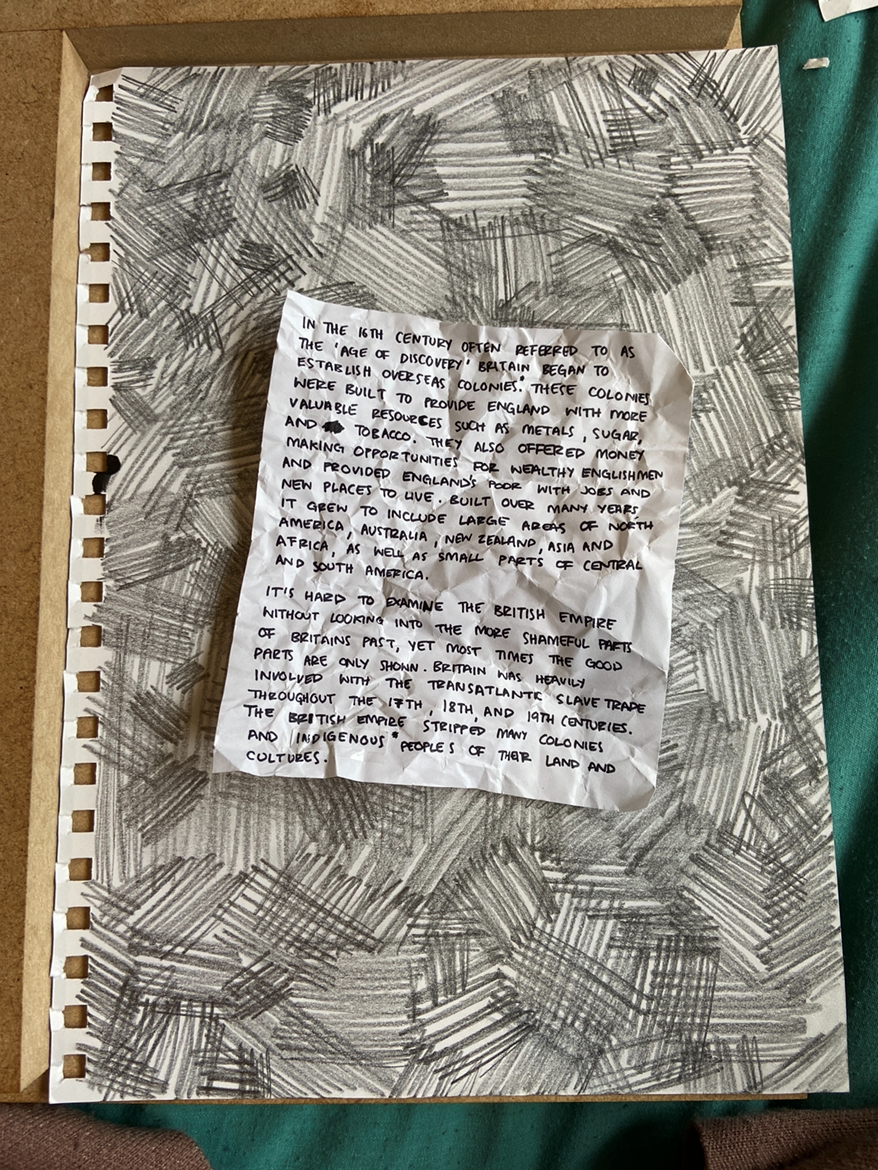 IN THE 16TH CENTURY OFTEN REFERRED TO AS
THE 'AGE OF DISCOVERY' BRITAIN BEGAN TO
ESTABLISH OVERSEAS COLONIES. THESE COLONIES
WERE BUILT TO PROVIDE ENGLAND WITH MORE
VALUABLE RESOURCES SUCH AS METALS, SUGAR,
AND TOBACCO. THEY ALSO OFFERED MONEY
MAKING OPPORTUNITIES FOR WEALTHY ENGLISHMEN
AND PROVIDED ENGLAND'S POOR WITH JOBS AND
NEW PLACES TO LIVE. BUILT OVER MANY YEARS
IT GREW TO INCLUDE LARGE AREAS OF NORTH
AMERICA, AUSTRALIA, NEW ZEALAND, ASIA AND
AFRICA, AS WELL AS SMALL PARTS OF CENTRAL
AND SOUTH AMERICA.
IT'S HARD TO EXAMINE THE BRITISH EMPIRE
WITHOUT LOOKING INTO THE MORE SHAMEFUL PARTS
OF BRITAINS PAST, YET MOST TIMES THE GOOD
PARTS ARE ONLY SHOWN. BRITAIN WAS HEAVILY
INVOLVED WITH THE TRANSATLANTIC SLAVE TRADE
THROUGHOUT THE 17TH, 18TH, AND 19TH CENTURIES.
THE BRITISH EMPIRE STRIPPED MANY COLONIES
AND INDIGENOUS PEOPLES OF THEIR LAND AND
CULTURES.